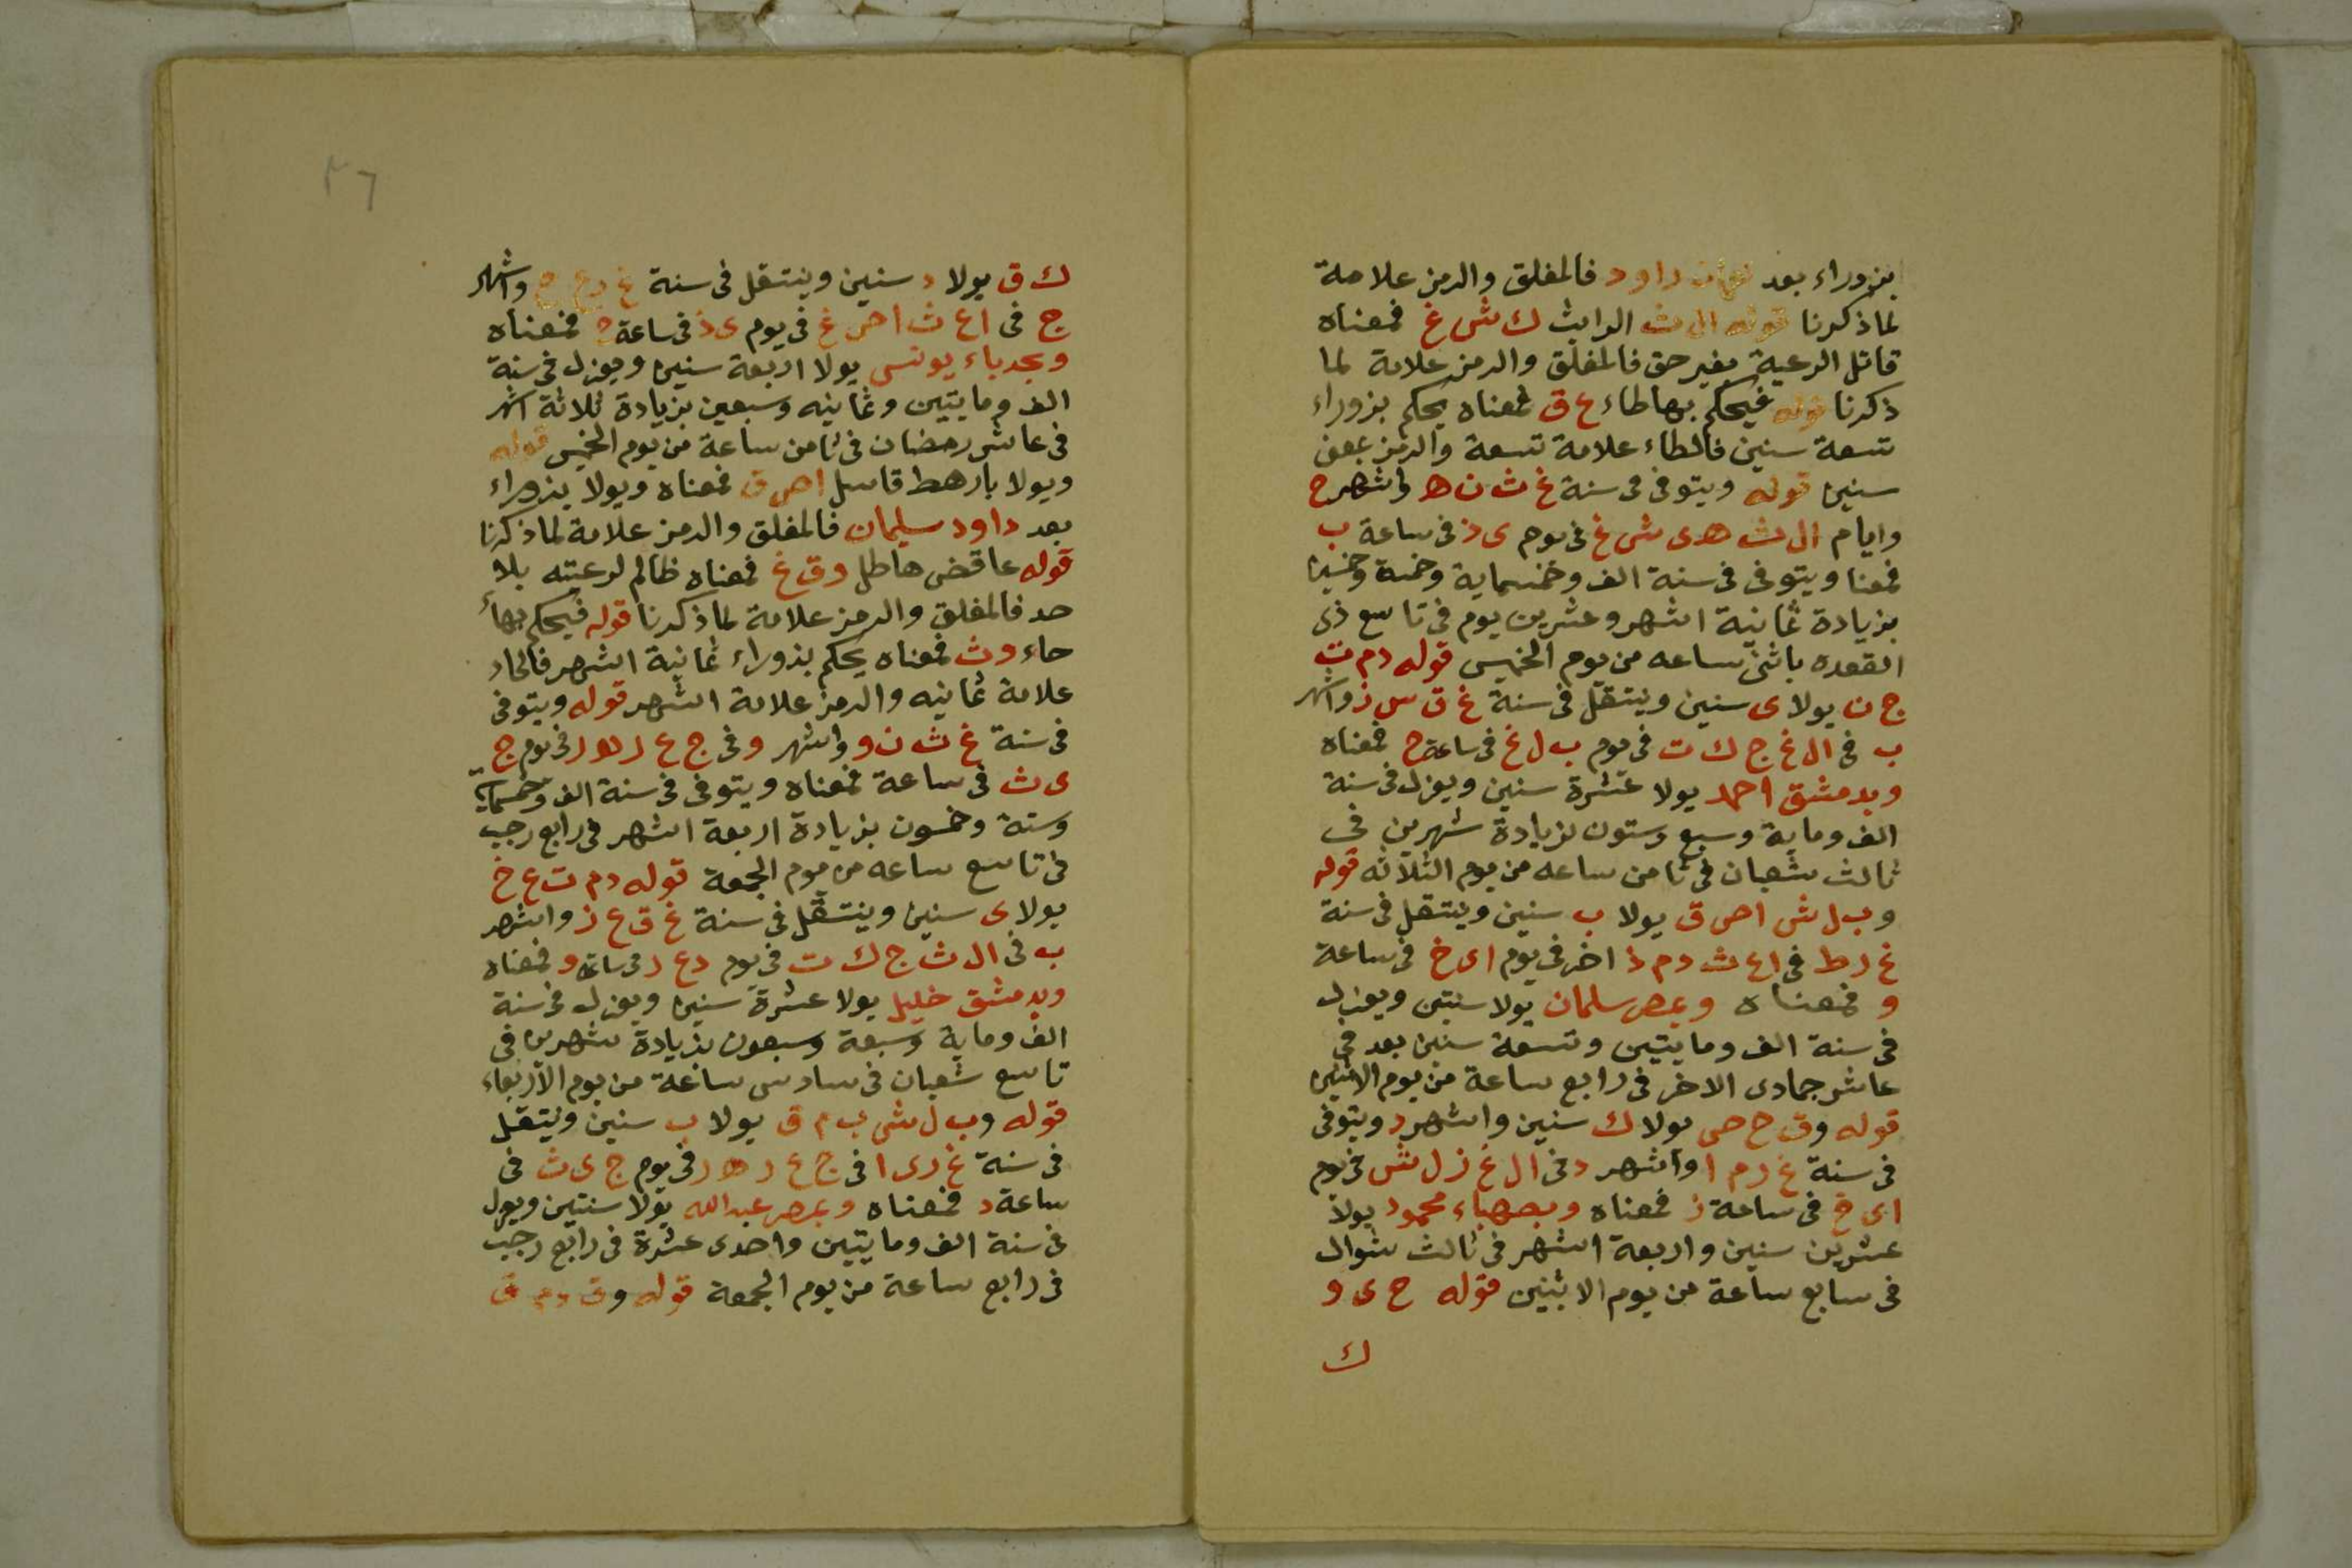 بزوراء بعد داود فالمغلق والرمز علامة
لما ذكرنا قوله ال ث الرابث ك ش غ فمعناه
قاتل الرعية بغير حق فالمغلق والرمز علامة لما
ذكرنا قوله فيحكم بها طاء ع ق فمعناه يحكم بزوراء
تسعة سنين فالطاء علامة تسعة والرمز بمعنى
سنين قوله ويتوفى فى سنة غ ث ن ه واشهر ح
وايام ال ث ه ى ش غ فى يوم ى ذ فى ساعة ب
فمعنا ويتوفى فى سنة الف وخمسماية وخمسة وخمسين
بزيادة ثمانية اشهر وعشرين يوم فى تاسع ذى
القعده باثنى ساعه من يوم الخميس قوله دم ت
ج ن يولا ى سنين وينتقل فى سنة غ ق س ز واشهر
ب فى ال غ ج ك ت فى يوم ب ل غ فى ساعة ح فمعناه
وبدمشق احمد يولا عشرة سنين ويعزل فى سنة
الف وماية وسبع وستون بزيادة شهرين فى
ثالث شعبان فى ثامن ساعه من يوم الثلاثه قوله
وب ل ش اص ق يولا ب سنين وينتقل فى سنة
غ ر ط فى اع ث دم ذ اخر فى يوم اى خ فى ساعة
و فمعناه وبمصر سلمان يولا سنتين ويعزل
فى سنة الف ومايتين وتسعة سنين بعد فى
عاشر جمادى الاخر فى رابع ساعة من يوم الاثنين
قوله وق ح ص يولا ك سنين واشهر د ويتوفى
فى سنة غ ر م ا واشهر د فى ال غ ز ل ش فى يوم
اى خ فى ساعة ز فمعناه وبصهباء محمود يولا
عشرين سنين واربعة اشهر فى ثالث شوال
فى سابع ساعة من يوم الاثنين قوله ح ى و
ك
٢٦
ك ق يولا د سنين وينتقل فى سنة غ رع ح واشهر
ج فى اع ث اص غ فى يوم ى ذ فى ساعة ح فمعناه
وبجدباء يونس يولا اربعة سنين ويعزل فى سنة
الف ومايتين وثمانيه وسبعين بزيادة ثلاثة اشهر
فى عاشر رمضان فى ثامن ساعة من يوم الخميس قوله
ويولا بارهط قاسل اص ق فمعناه ويولا بزوراء
بعد داود سليمان فالمغلق والرمز علامة لما ذكرنا
قوله عاقض هاطل وق غ فمعناه ظالم لرعيته بلا
حد فالمغلق والرمز علامة لما ذكرنا قوله فيحكم بها
حاء وث فمعناه يحكم بزوراء ثمانية اشهر فالحاء
علامة ثمانيه والرمز علامة اشهر قوله ويتوفى
فى سنة غ ث ن و واشهر و فى ج ع ر ه ر فى يوم ج
ى ث فى ساعة فمعناه ويتوفى فى سنة الف وخمسماية
وستة وخمسون بزيادة اربعة اشهر فى رابع رجب
فى تاسع ساعه من يوم الجمعة قوله دم ت ع خ
يولا ى سنين وينتقل فى سنة غ ق ع ز واشهر
ب فى ال ث ج ك ت فى يوم دع ر فى ساعة و فمعناه
وبدمشق خليل يولا عشرة سنين ويعزل فى سنة
الف وماية وسبعة وسبعون بزيادة شهرين فى
تاسع شعبان فى سادس ساعة من يوم الاربعاء
قوله وب ل ش ب م ق يولا ب سنين وينتقل
فى سنة غ رى ا فى ج ع ر ه ر فى يوم ج ى ث فى
ساعة د فمعناه وبمصر عبد الله يولا سنتين ويعزل
فى سنة الف ومايتين واحدى عشرة فى رابع رجب
فى رابع ساعة من يوم الجمعة قوله وق دم ق